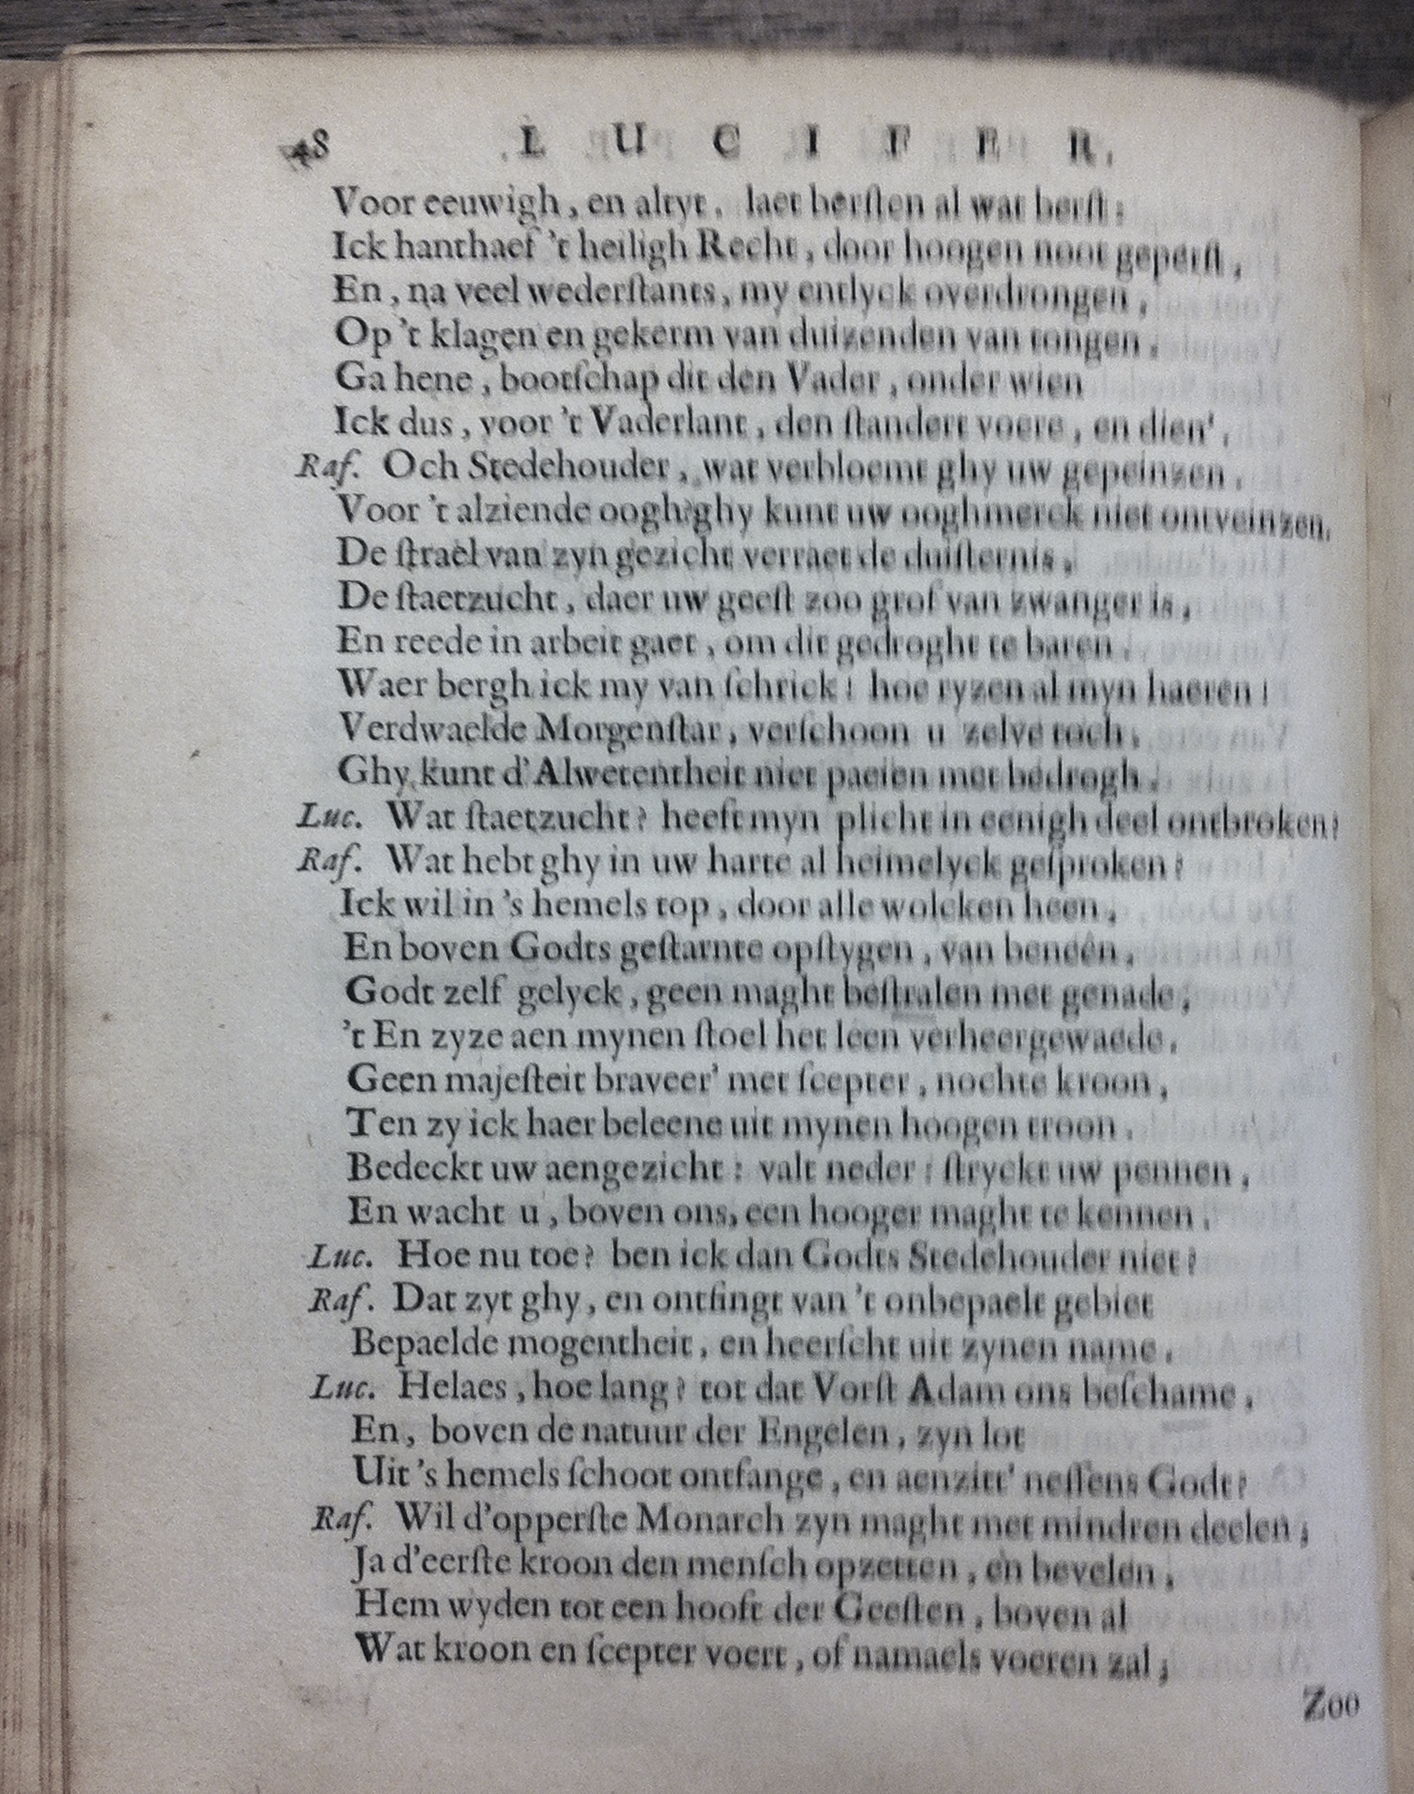 48 LUCIFER.
Voor eeuwigh, en altyt. laet berſten al wat berſt:
Ick hanthaef 't heiligh Recht, door hoogen noot geperſt,
En, na veel wederſtants, my entlyck overdrongen,
Op 't klagen en gekerm van duizenden van tongen.
Ga hene, bootſchap dit den Vader, onder wien
Ick dus, voor 't Vaderlant, den ſtandert voere, en dien'.
Raf. Och Stedehouder, wat verbloemt ghy uw gepeinzen.
Voor 't alziende oogh? ghy kunt uw ooghmerck niet ontveinzen.
De ſtrael van zyn gezicht verraet de duiſternis,
De ſtaetzucht, daer uw geeſt zoo grof van zwanger is,
En reede in arbeit gaet, om dit gedroght te baren.
Waer bergh ick my van ſchrick! hoe ryzen al myn haeren!
Verdwaelde Morgenſtar, verſchoon u zelve toch.
Ghy kunt d'Alwetentheit niet paeien met bedrogh.
Luc. Wat ſtaetzucht? heeft myn plicht in eenigh deel ontbroken?
Raf. Wat hebt ghy in uw harte al heimelyck geſproken?
Ick wil in 's hemels top, door alle wolcken heen,
En boven Godts geſtarnte opſtygen, van beneên,
Godt zelf gelyck, geen maght beſtralen met genade,
't En zy ze aen mynen ſtoel het leen verheergewaede.
Geen majeſteit braveer' met ſcepter, nochte kroon,
Ten zy ick haer beleene uit mynen hoogen troon.
Bedeckt uw aengezicht: valt neder: ſtryckt uw pennen,
En wacht u, boven ons, een hooger maght te kennen.
Luc. Hoe nu toe? ben ick dan Godts Stedehouder niet?
Raf. Dat zyt ghy, en ontfingt van 't onbepaelt gebiet
Bepaelde mogentheit, en heerſcht uit zynen name.
Luc. Helaes, hoe lang? tot dat Vorſt Adam ons beſchame,
En, boven de natuur der Engelen, zyn lot
Uit 's hemels ſchoot ontfange, en aenzitt' neffens Godt?
Raf. Wil d'opperſte Monarch zyn maght met mindren deelen,
Ja d'eerſte kroon den menſch opzetten, en bevelen,
Hem wyden tot een hooft der Geeſten, boven al
Wat kroon en ſcepter voert, of namaels voeren zal;
Zoo